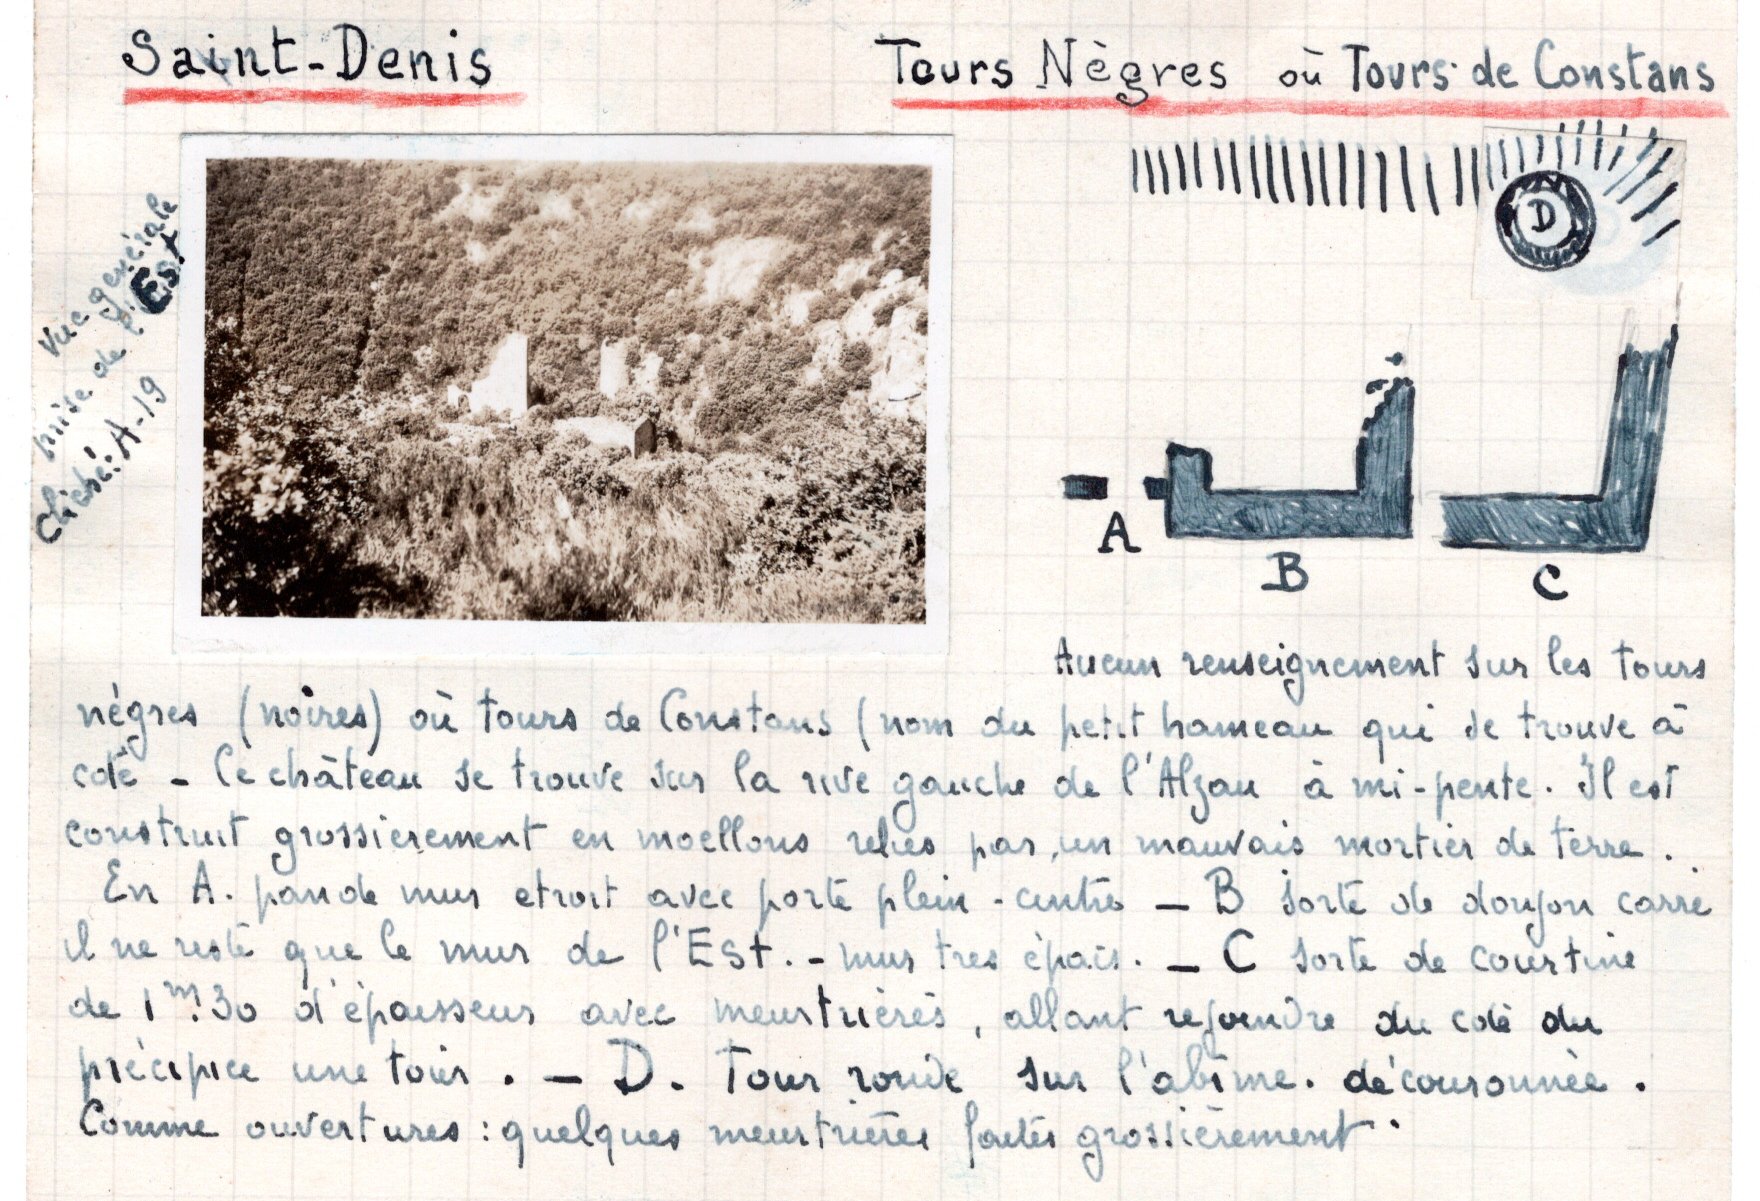 Saint-Denis
Tours Nègres où Tours de Constans
Vue générale
prise de l'Est
Cliché: A-19
D
A
B
C
Aucun renseignement sur les tours
nègres (noires) où tours de Constans (nom du petit hameau qui se trouve à
coté - Ce château se trouve sur la rive gauche de l'Alzau à mi-pente. Il est
construit grossièrement en moellons reliés par un mauvais mortier de terre.
En A. pan de mur etroit avec porte plein-cintre - B sorte de donjon carré
il ne reste que le mur de l'Est. - mur tres épais. - C sorte de courtine
de 1m.30 d'épaisseur avec meurtrières, allant rejoindre du coté du
précipice une tour. - D. Tour ronde sur l'abîme. découronnée.
Comme ouvertures: quelques meurtrières faites grossièrement.